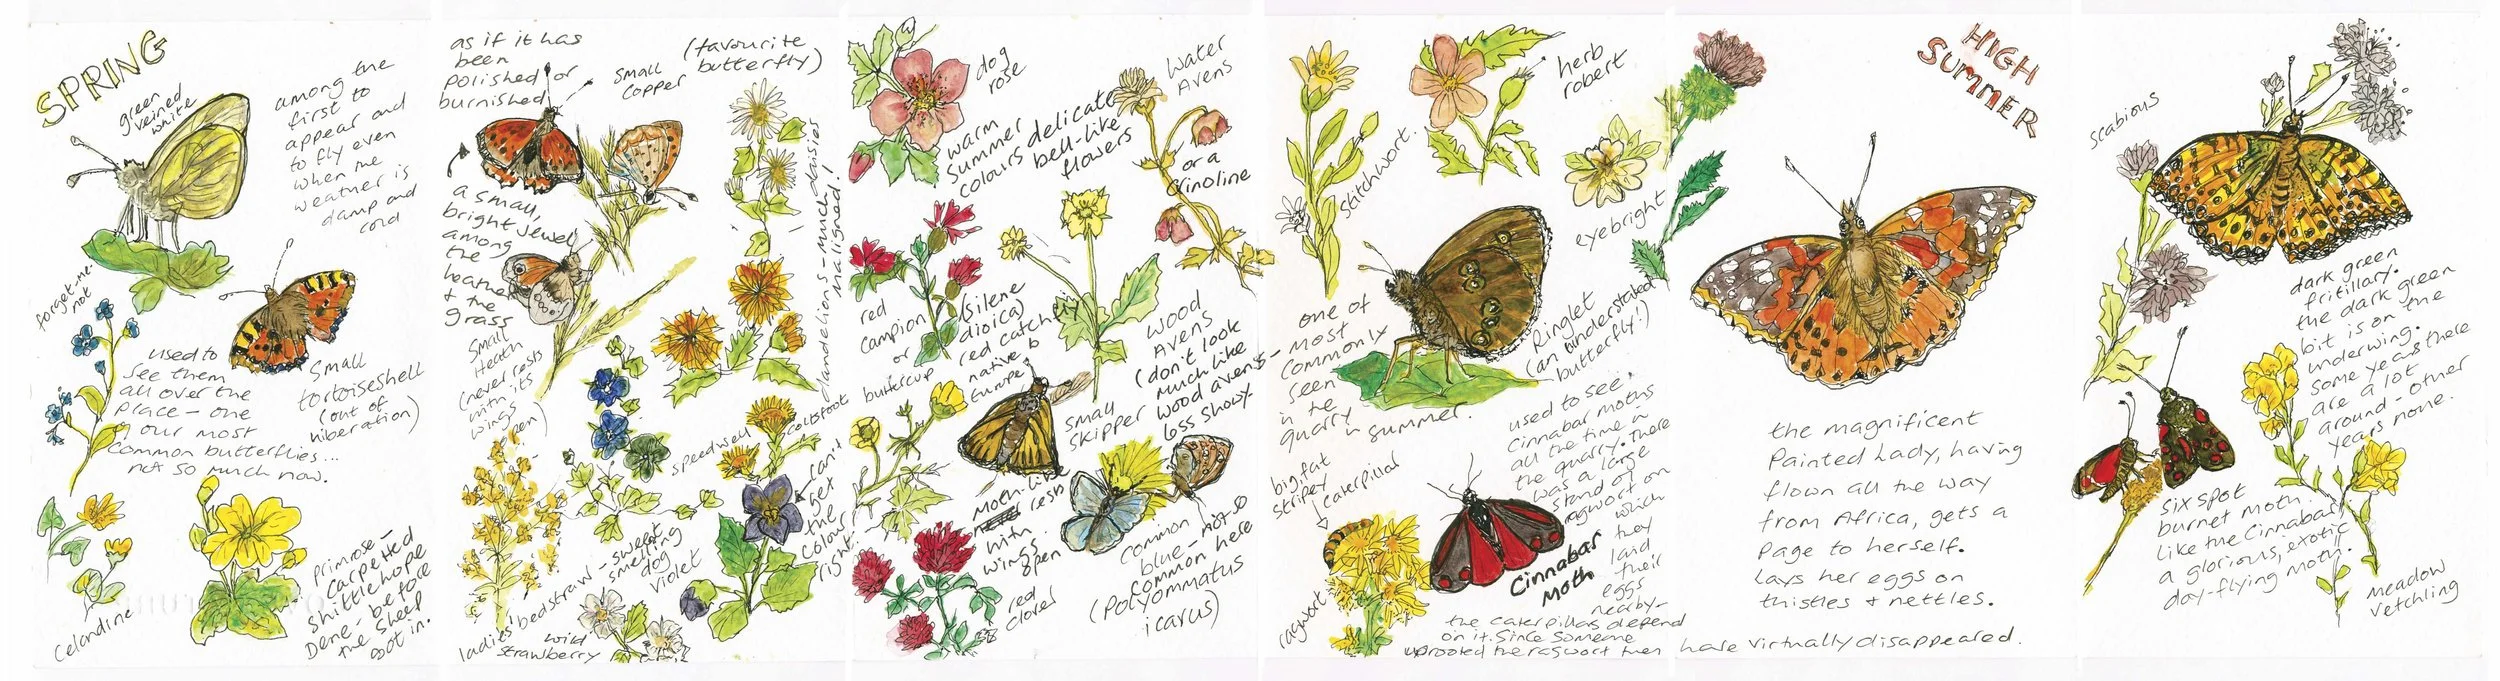 SPRING
green
veined
white
among the
first to
appear and
to fly even
when the
weather is
damp and
cold
forget-me-
not
used to
see them
all over the
place - one
of our most
common butterflies...
not so much now.
small
tortoiseshell
(out of
hiberation)
celandine
primrose -
carpetted
Shittlehope
Dene - before
the sheep
got in.
as if it has
been
polished or
burnished
small
copper
(favourite
butterfly)
a small,
bright jewel
among
the
heather
+ the
grass
small
heath
(never rests
with its
wings
open)
dandelions - much
maligned!
daisies
speedwell
coltsfoot
can't
get
the
colour
right.
sweet
smelling
dog
violet
ladies' bedstraw -
wild
strawberry
dog
rose
warm
summer
colours
delicate
bell-like
flowers
water
avens
or a
crinoline
red
campion
or
(silene
dioica)
red catchfly
native to
Europe
buttercup
wood
avens
(don't look
much like
wood avens -
less showy.
small
skipper
moth-like
rests
with
wings
open
common
blue - not so
common here
(Polyommatus
icarus)
red
clover
stitchwort.
herb
robert
eyebright
one of
most
commonly
seen
in the
quarry
in summer.
Ringlet
(an understated
butterfly!)
big, fat
stripey
caterpillar
used to see
cinnabar moths
all the time in
the quarry. There
was a large
stand of
ragwort on
which
they
laid
their
eggs
nearby -
Cinnabar
Moth
ragwort
the caterpillars depend
on it. Since someone
uprooted the ragwort they have virtually disappeared.
HIGH
SUMMER
the magnificent
Painted Lady, having
flown all the way
from Africa, gets a
page to herself.
lays her eggs on
thistles + nettles.
scabious
dark green
fritillary.
the dark green
bit is on the
underwing.
some years there
are a lot
around - other
years none.
six spot
burnet moth.
like the Cinnabar,
a glorious, exotic
day-flying moth.
meadow
vetchling